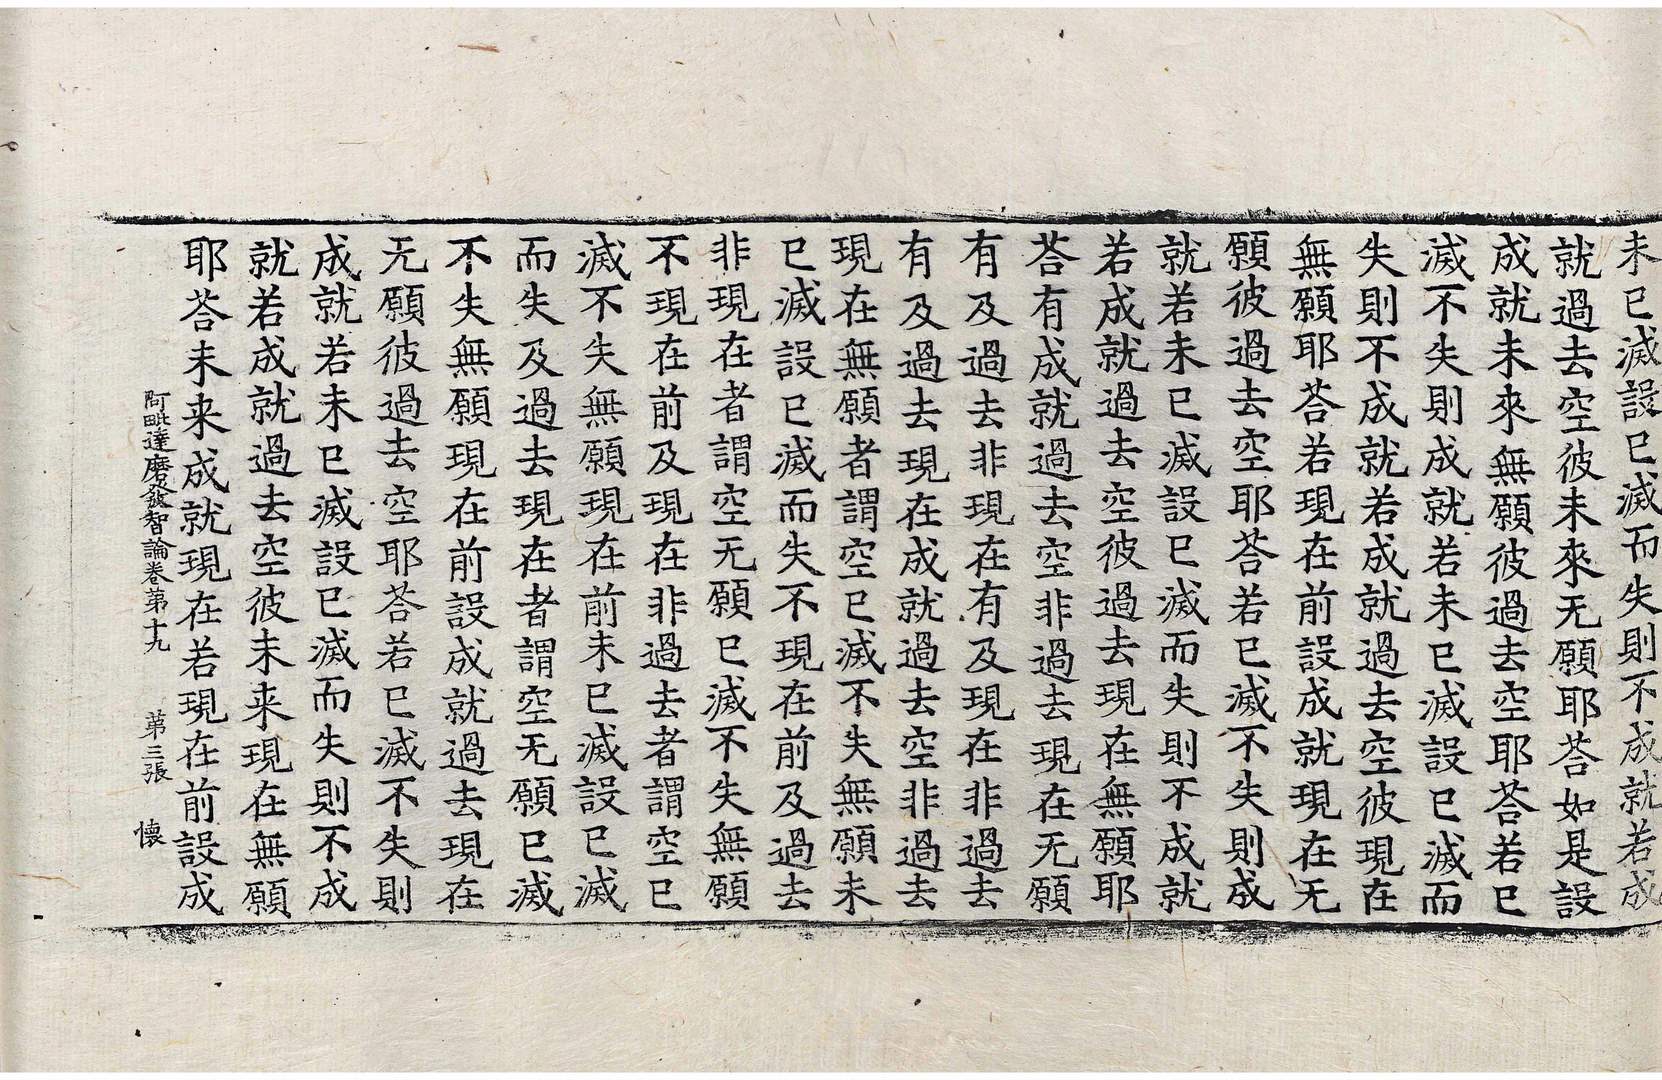 未已滅設已滅而失則不成就若成
就過去空彼未來无願耶荅如是設
成就未來無願彼過去空耶荅若已
滅不失則成就若未已滅設已滅而
失則不成就若成就過去空彼現在
無願耶荅若現在前設成就現在无
願彼過去空耶荅若已滅不失則成
就若未已滅設已滅而失則不成就
若成就過去空彼過去現在無願耶
荅有成就過去空非過去現在无願
有及過去非現在有及現在非過去
有及過去現在成就過去空非過去
現在無願者謂空已滅不失無願未
已滅設已滅而失不現在前及過去
非現在者謂空无願已滅不失無願
不現在前及現在非過去者謂空已
滅不失無願現在前未已滅設已滅
而失及過去現在者謂空无願已滅
不失無願現在前設成就過去現在
无願彼過去空耶荅若已滅不失則
成就若未已滅設已滅而失則不成
就若成就過去空彼未来現在無願
耶荅未来成就現在若現在前設成
阿毗達磨發智論卷第十九 第三張 懷